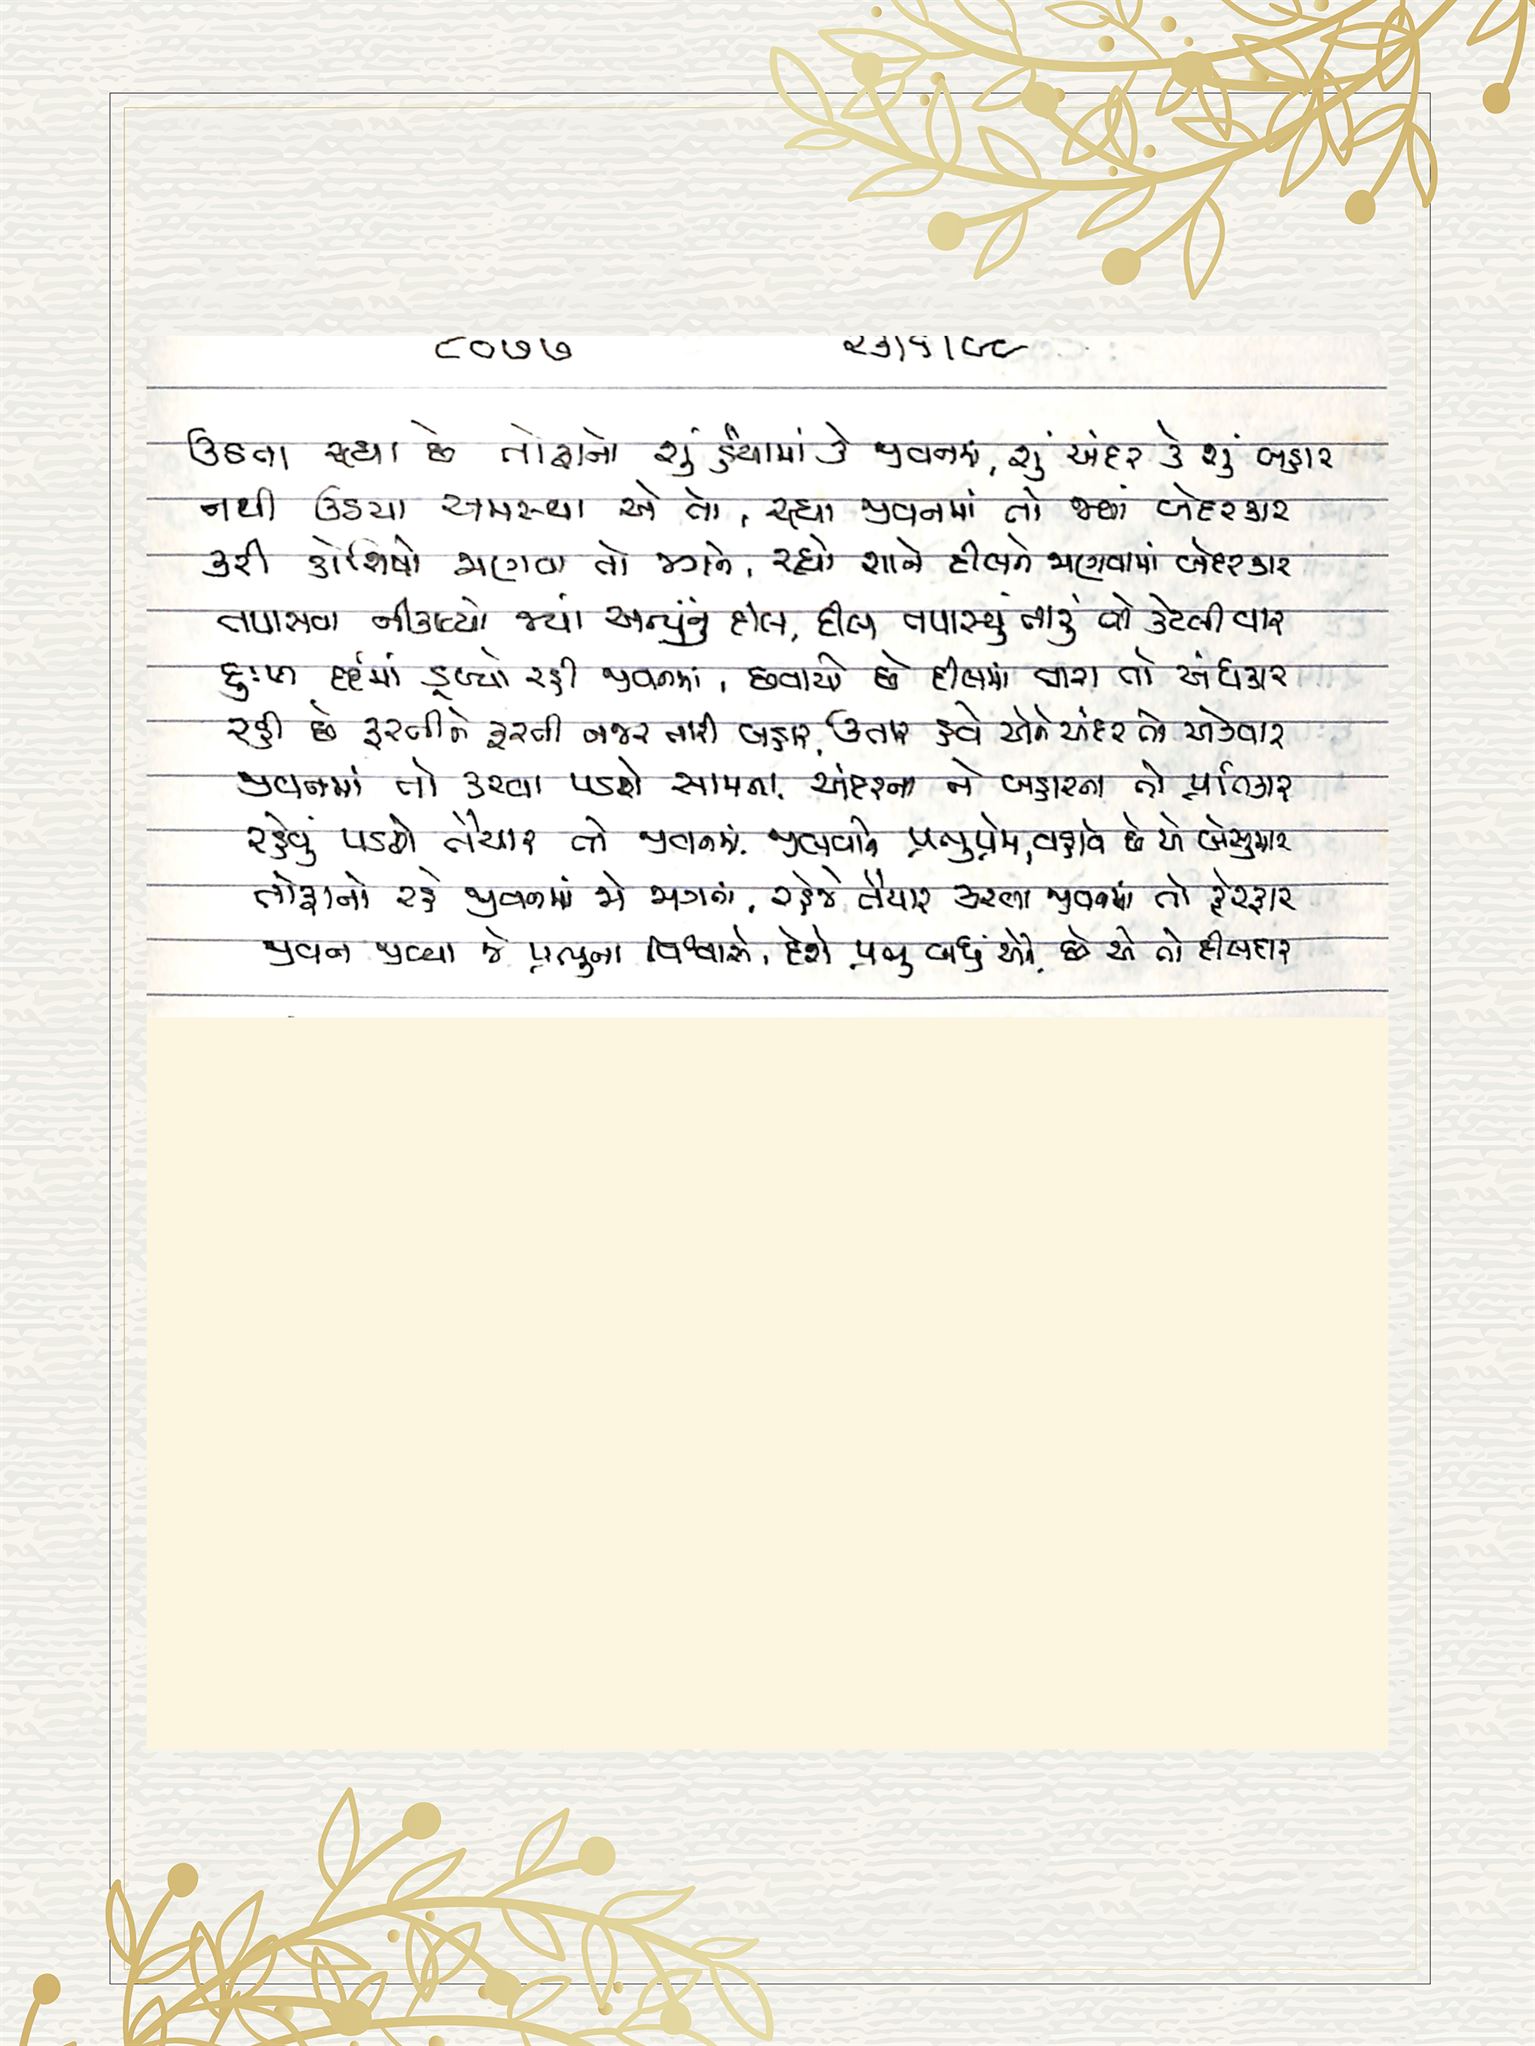 ૮૦૭૭ ૨૩/૫/૯૯
ઉઠતા રહ્યા છે તોફાનો શું હૈયામાં કે જીવનમાં, શું અંદર કે શું બહાર
નથી ઉઠયા અમસ્થા એ તો, રહ્યા જીવનમાં તો જ્યાં બેદરકાર
કરી કોશિષો જાણવા તો જગને, રહ્યો શાને દીલને જાણવામાં બેદરકાર
તપાસવા નીકળ્યો જ્યાં અન્યુંનું દીલ, દીલ તપાસ્યું તારું તો કેટલી વાર
દુઃખ દર્દમાં ડૂબ્યો રહી જીવનમાં, છવાયો છે દીલમાં તારા તો અંધકાર
રહી છે ફરતીને ફરતી નજર તારી બહાર, ઉતાર હવે એને અંદર તો એકવાર
જીવનમાં તો કરવા પડશે સામના, અંદરના ને બહારના તો પ્રતિકાર
રહેવું પડશે તૈયાર તો જીવનમાં, જીલવાને પ્રભુપ્રેમ, વહાવે છે એ બેસુમાર
તોફાનો રહે જીવનમાં જો જાગતાં, રહેજે તૈયાર કરવા જીવનમાં તો ફેરફાર
જીવન જીવ્યા જે પ્રભુના વિશ્વાસે, દેશે પ્રભુ બધું એને, છે એ તો દીલદાર